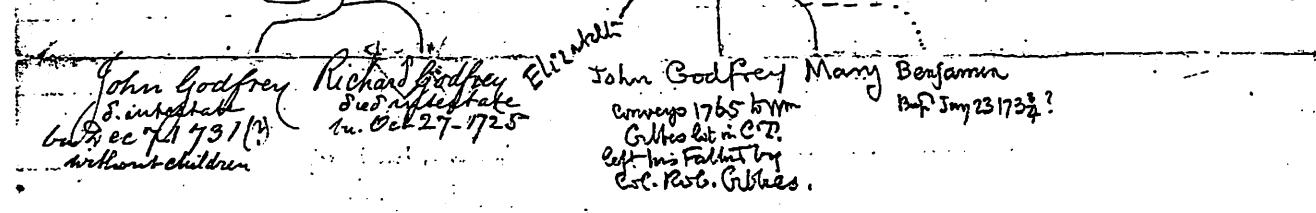 John Godfrey
d. intestate
bu Dec 7 1731 (?)
without children
Richard Godfrey
died intestate
bu. Oct-27-1725
Elizabeth
John Godfrey
conveys 1765 to Wm
Gibbes lot in C.T.
left his Father by
Col. Rob. Gibbes.
Mary
Benjamin
Bap. Jany 23 173 3/4 ?